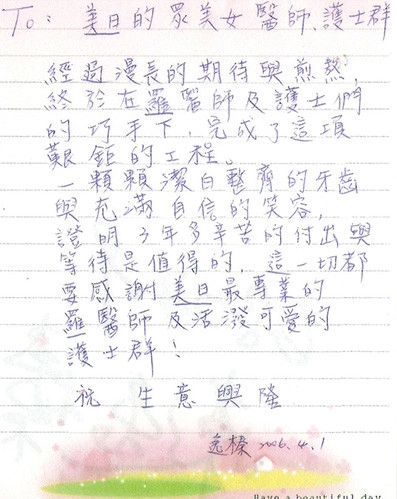 To: 美日的眾美女醫師、護士群
經過漫長的期待與煎熬,
終於在羅醫師及護士們
的巧手下,完成了這項
艱鉅的工程。
一顆顆潔白整齊的牙齒
與充滿自信的笑容,
證明3年多辛苦的付出與
等待是值得的,這一切都
要感謝美日最專業的
羅醫師及活潑可愛的
護士群!
祝 生意興隆
逸榛 2006.4.1
Have a beautiful day